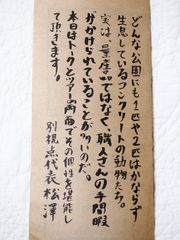 どんな公園にも1匹や2匹はかならず
生息しているコンクリートの動物たち。
実は、量産品ではなく、職人さんの手間暇
がかけられていることが多いのだ。
本日はトークとツアーの両面でその個性を堪能し
て頂きます！
別視点代表 松澤